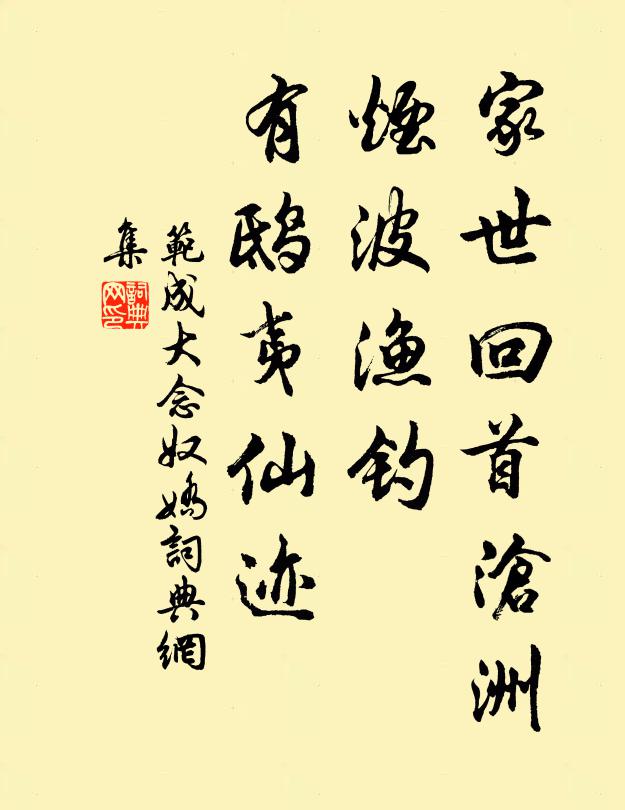 家世回首滄洲
煙波漁釣
有鴟夷仙迹
範成大念奴嬌詞典網
集
詞典
网印